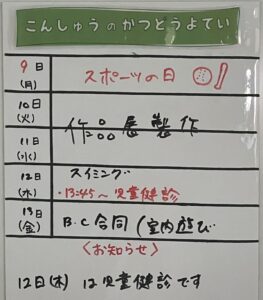 こんしゅうのかつどうよてい
9日(月) スポーツの日
10日(火)
作品展製作
11日(水)
12日(木) スイミング
・13:45～児童健診
13日(金) B.C合同(室内遊び
〈お知らせ〉
12日(木) は児童健診です